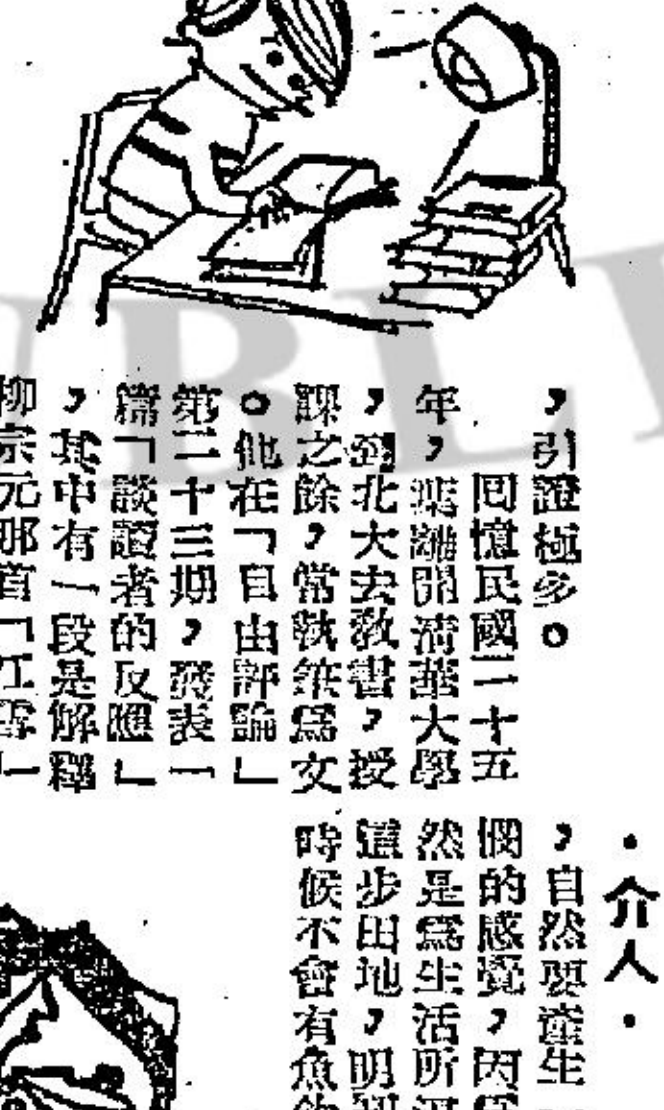 ，引證極多。
回憶民國二十五
年，葉離開清華大學
，到北大去教書，授
課之餘，常執筆為文
。他在「自由評論」
第二十三期，發表一
篇「談讀者的反應」
，其中有一段是解釋
柳宗元那首「江雪」
・介人・
，自然要產生
憫的感覺，因為
然是為生活所
這步田地，明
時候不會有魚